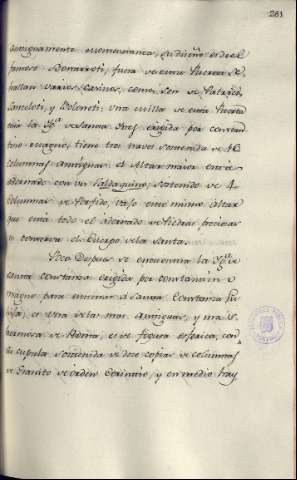 281
antiguamente
famoso Bonarroti, fuera de esta Puerta se
hallan varios Casinos, como son de Patrizi,
Lanceloti, y Boloneti: Una milla de esta Puerta
esta la Yg.ª de Santa Ynes erigida por Constan
tino es tiene tres naves sostenida de 16
columnas antiguas el Altar maior está
adornado con un Valdaquino, sostenido de 4
columnas de Porfido, vajo este mismo altar
que está todo el adornado de Piedras preciosas
se conserva el Cuerpo de la Santa.
Poco Despues se encuentra la Yg.ª de
Santa Constanza erigida por Constantino
magno para enterrar á Santa Constanza su
hija, es una de las mas antiguas, y mas
hermosa de Roma, es de figura esferica, con
su cupula sostenida de doce copias de columnas
de Granito de orden Corintio, y en medio hay